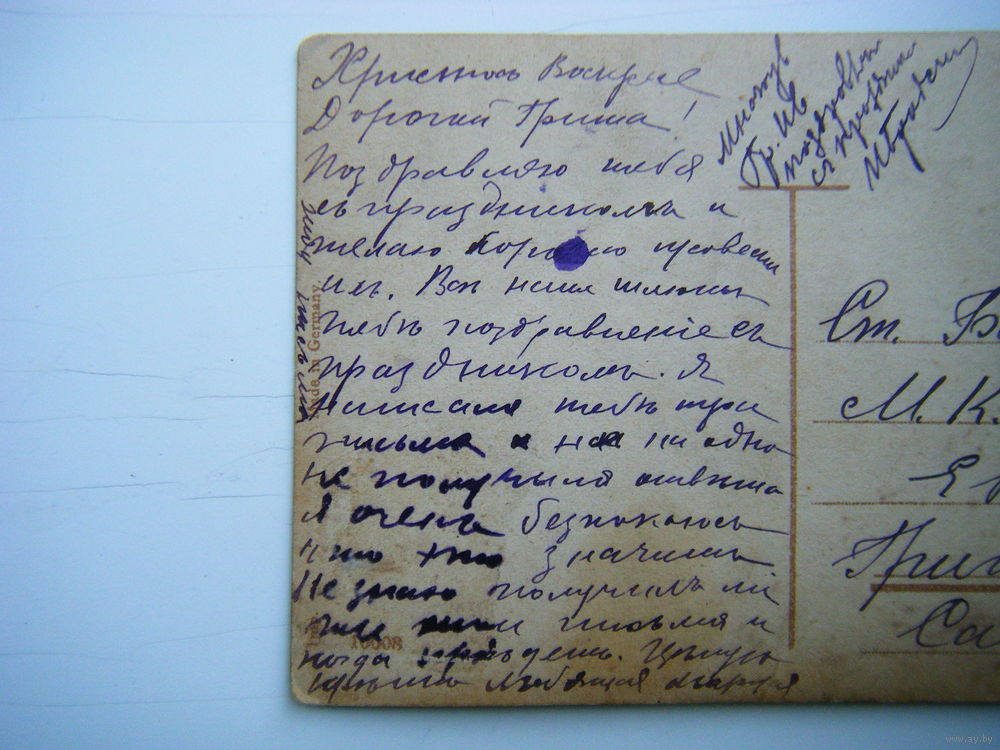 Христосъ Воскресе
Дорогий Гриша!
Поздравляю тебя
съ праздникомъ и
желаю хорошо провести
ихъ. Вси наши шлютъ
тебѣ поздравленіе съ
праздникомъ. Я
написала тебѣ три
письма и ни одно
не получила отвѣта
Я очень безпокоюсь
что это значитъ.
Не знаю получилъ ли
ты письмя и
когда приѣдешь. Цѣлую
крѣпко любящая
жду
Made in Germany
10008
Многоув
Гр. Ив
поздравляю
с праздником
Ст. Б
М. К.
Гри
Са
www.ay.by